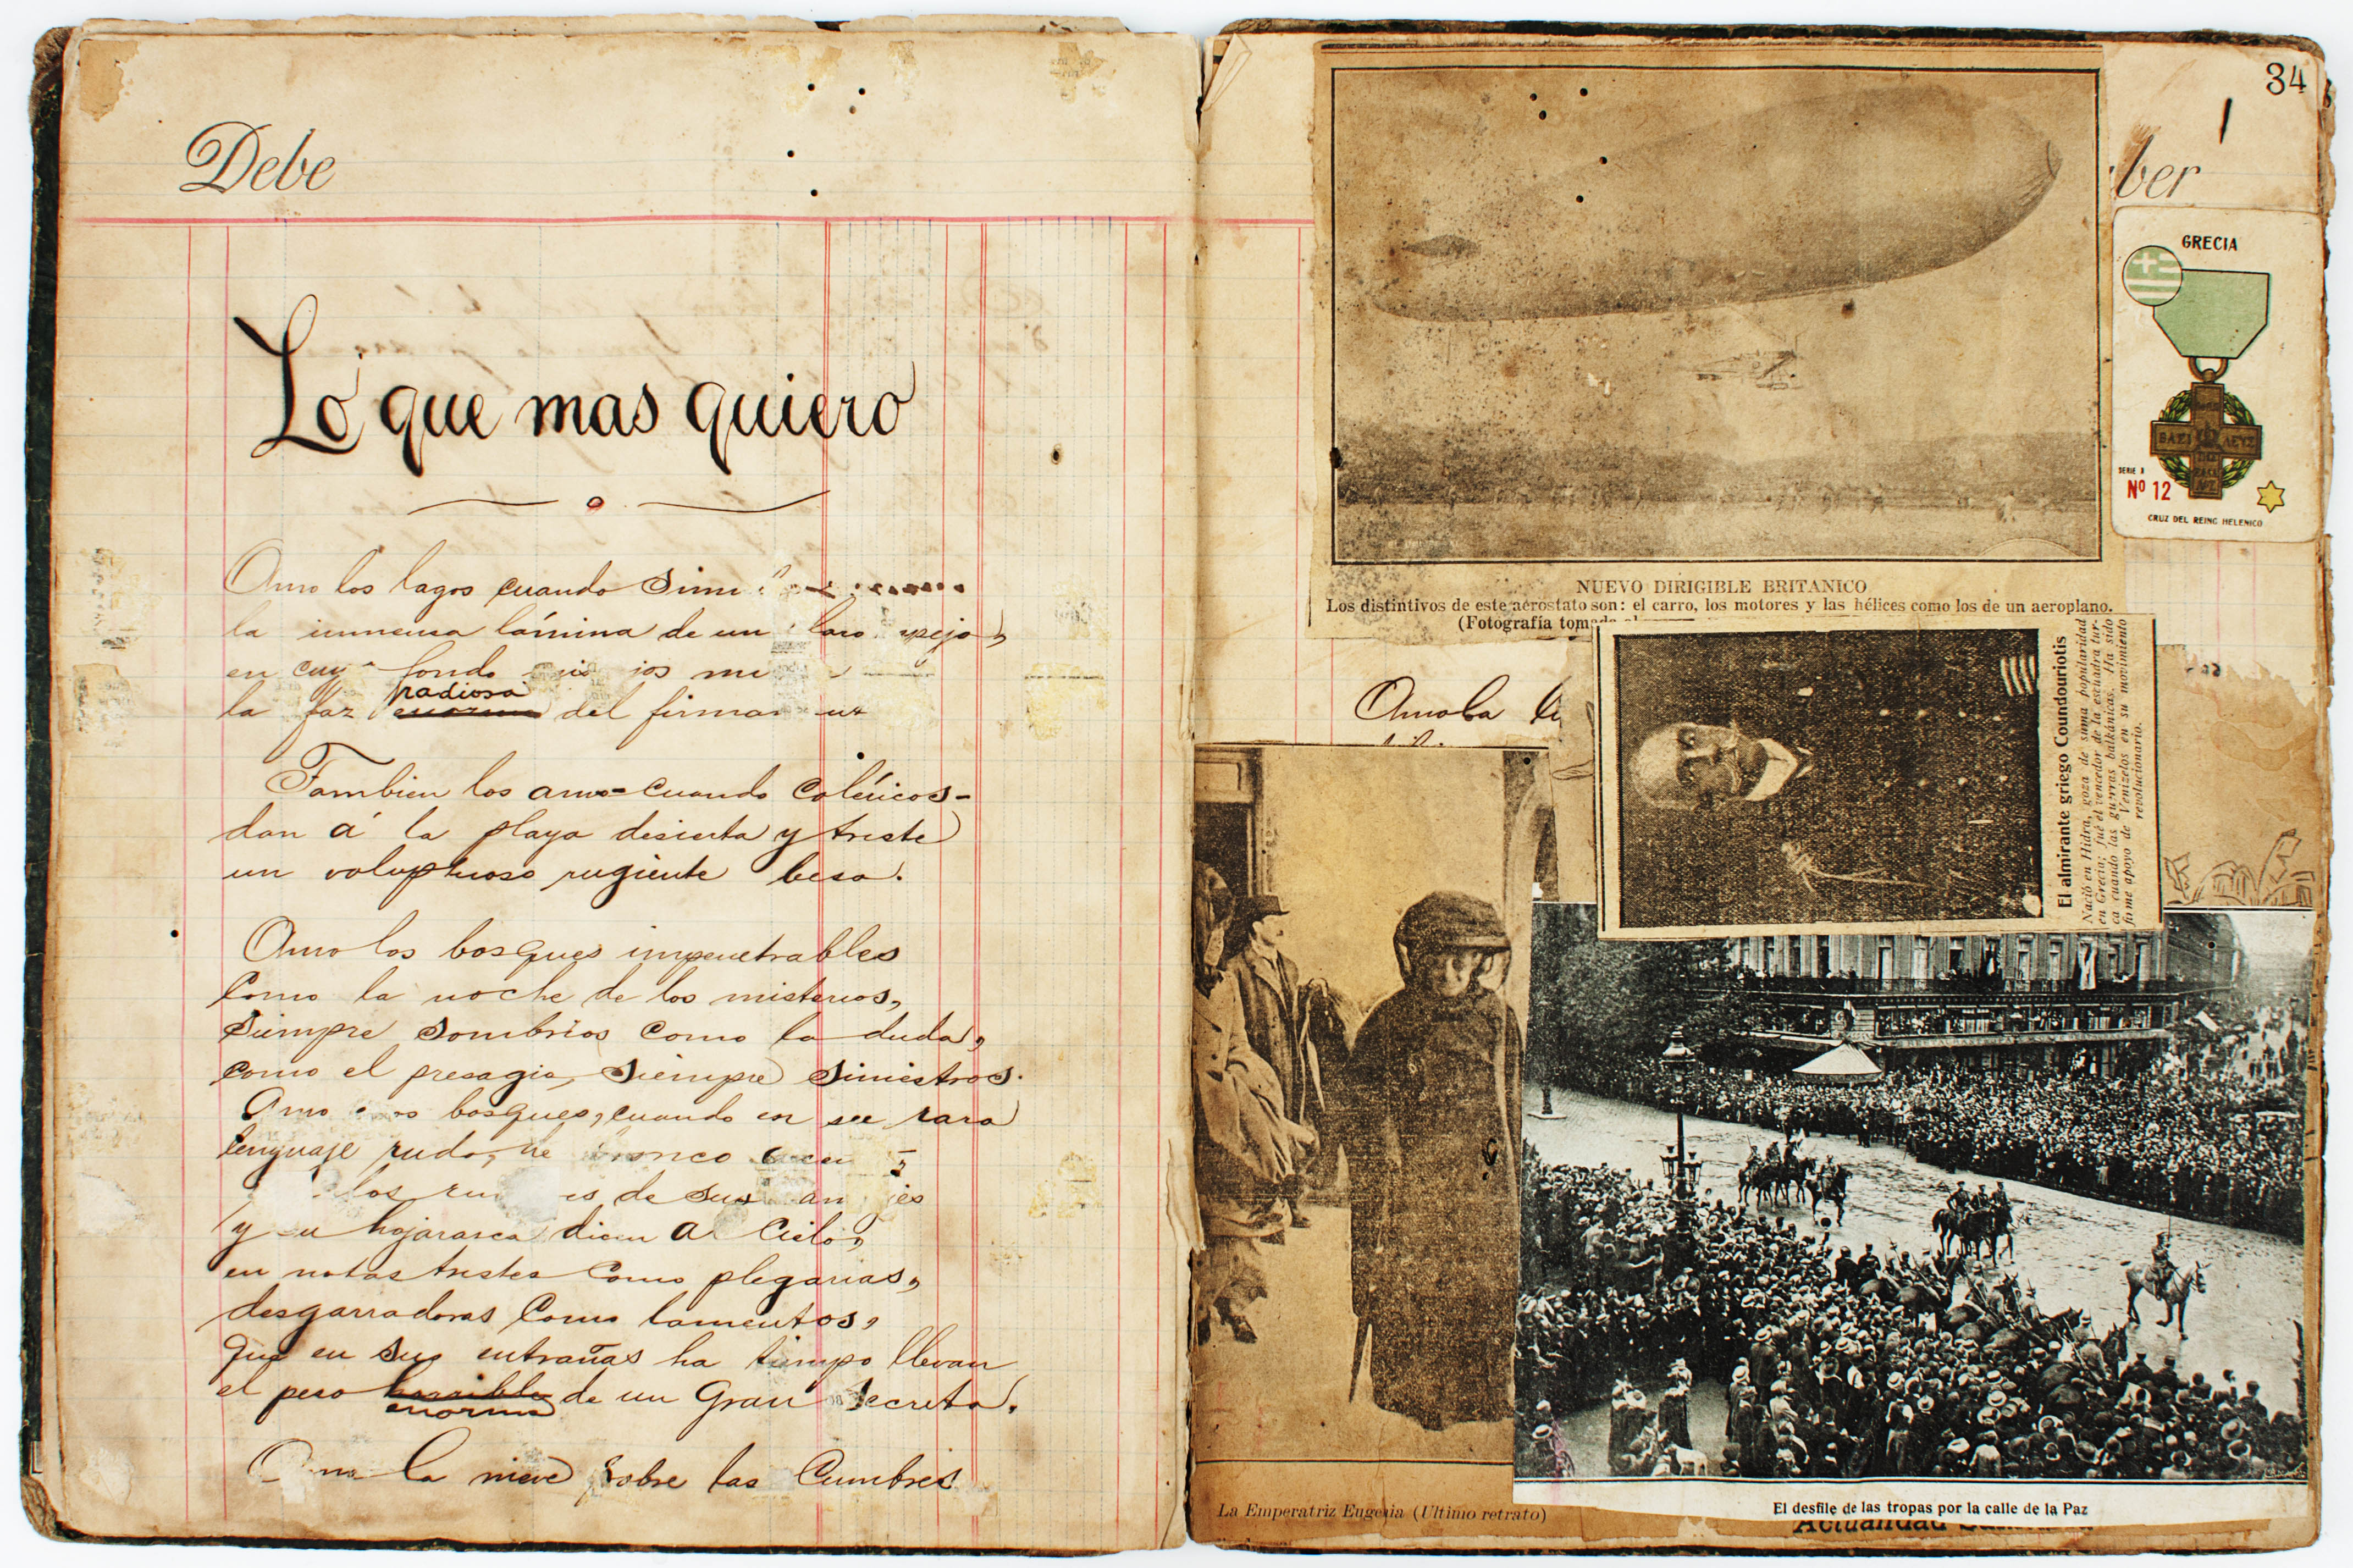 Debe
Lo que mas quiero
Amo los lagos cuando
la inmensa lámina de un
en fondo
la faz radiosa enorme del
Tambien los amo - cuando coléricos -
dan á la playa desierta y triste
un voluptuoso rugiente beso.
Amo los bosques impenetrables
como la noche de los misterios,
siempre sombrios como la duda,
como el presagio, siempre siniestros.
Amo bosques, cuando en su raro
lenguaje rudo, de
los de sus
y su hojarasca dicen al Cielo,
en notas tristes como plegarias,
desgarradoras como lamentos,
que en sus entrañas ha tiempo llevan
el peso horrible enorme de un Gran Secreto.
Amo la nieve sobre las Cumbres
34
ber
NUEVO DIRIGIBLE BRITANICO
Los distintivos de este aerostato son: el carro, los motores y las hélices como los de un aeroplano.
(Fotografía
GRECIA
SERIE
Nº 12
CRUZ DEL REINO HELENICO
Amo la
El almirante griego Coundouriotis
Nació en Hidra, goza de suma popularidad
en Grecia; fué el vencedor de la escuadra tur-
ca cuando las guerras balkánicas. Ha sido
firme apoyo de Venizelos en su movimiento
revolucionario.
La Emperatriz Eugenia (Ultimo retrato)
El desfile de las tropas por la calle de la Paz
Actualidad